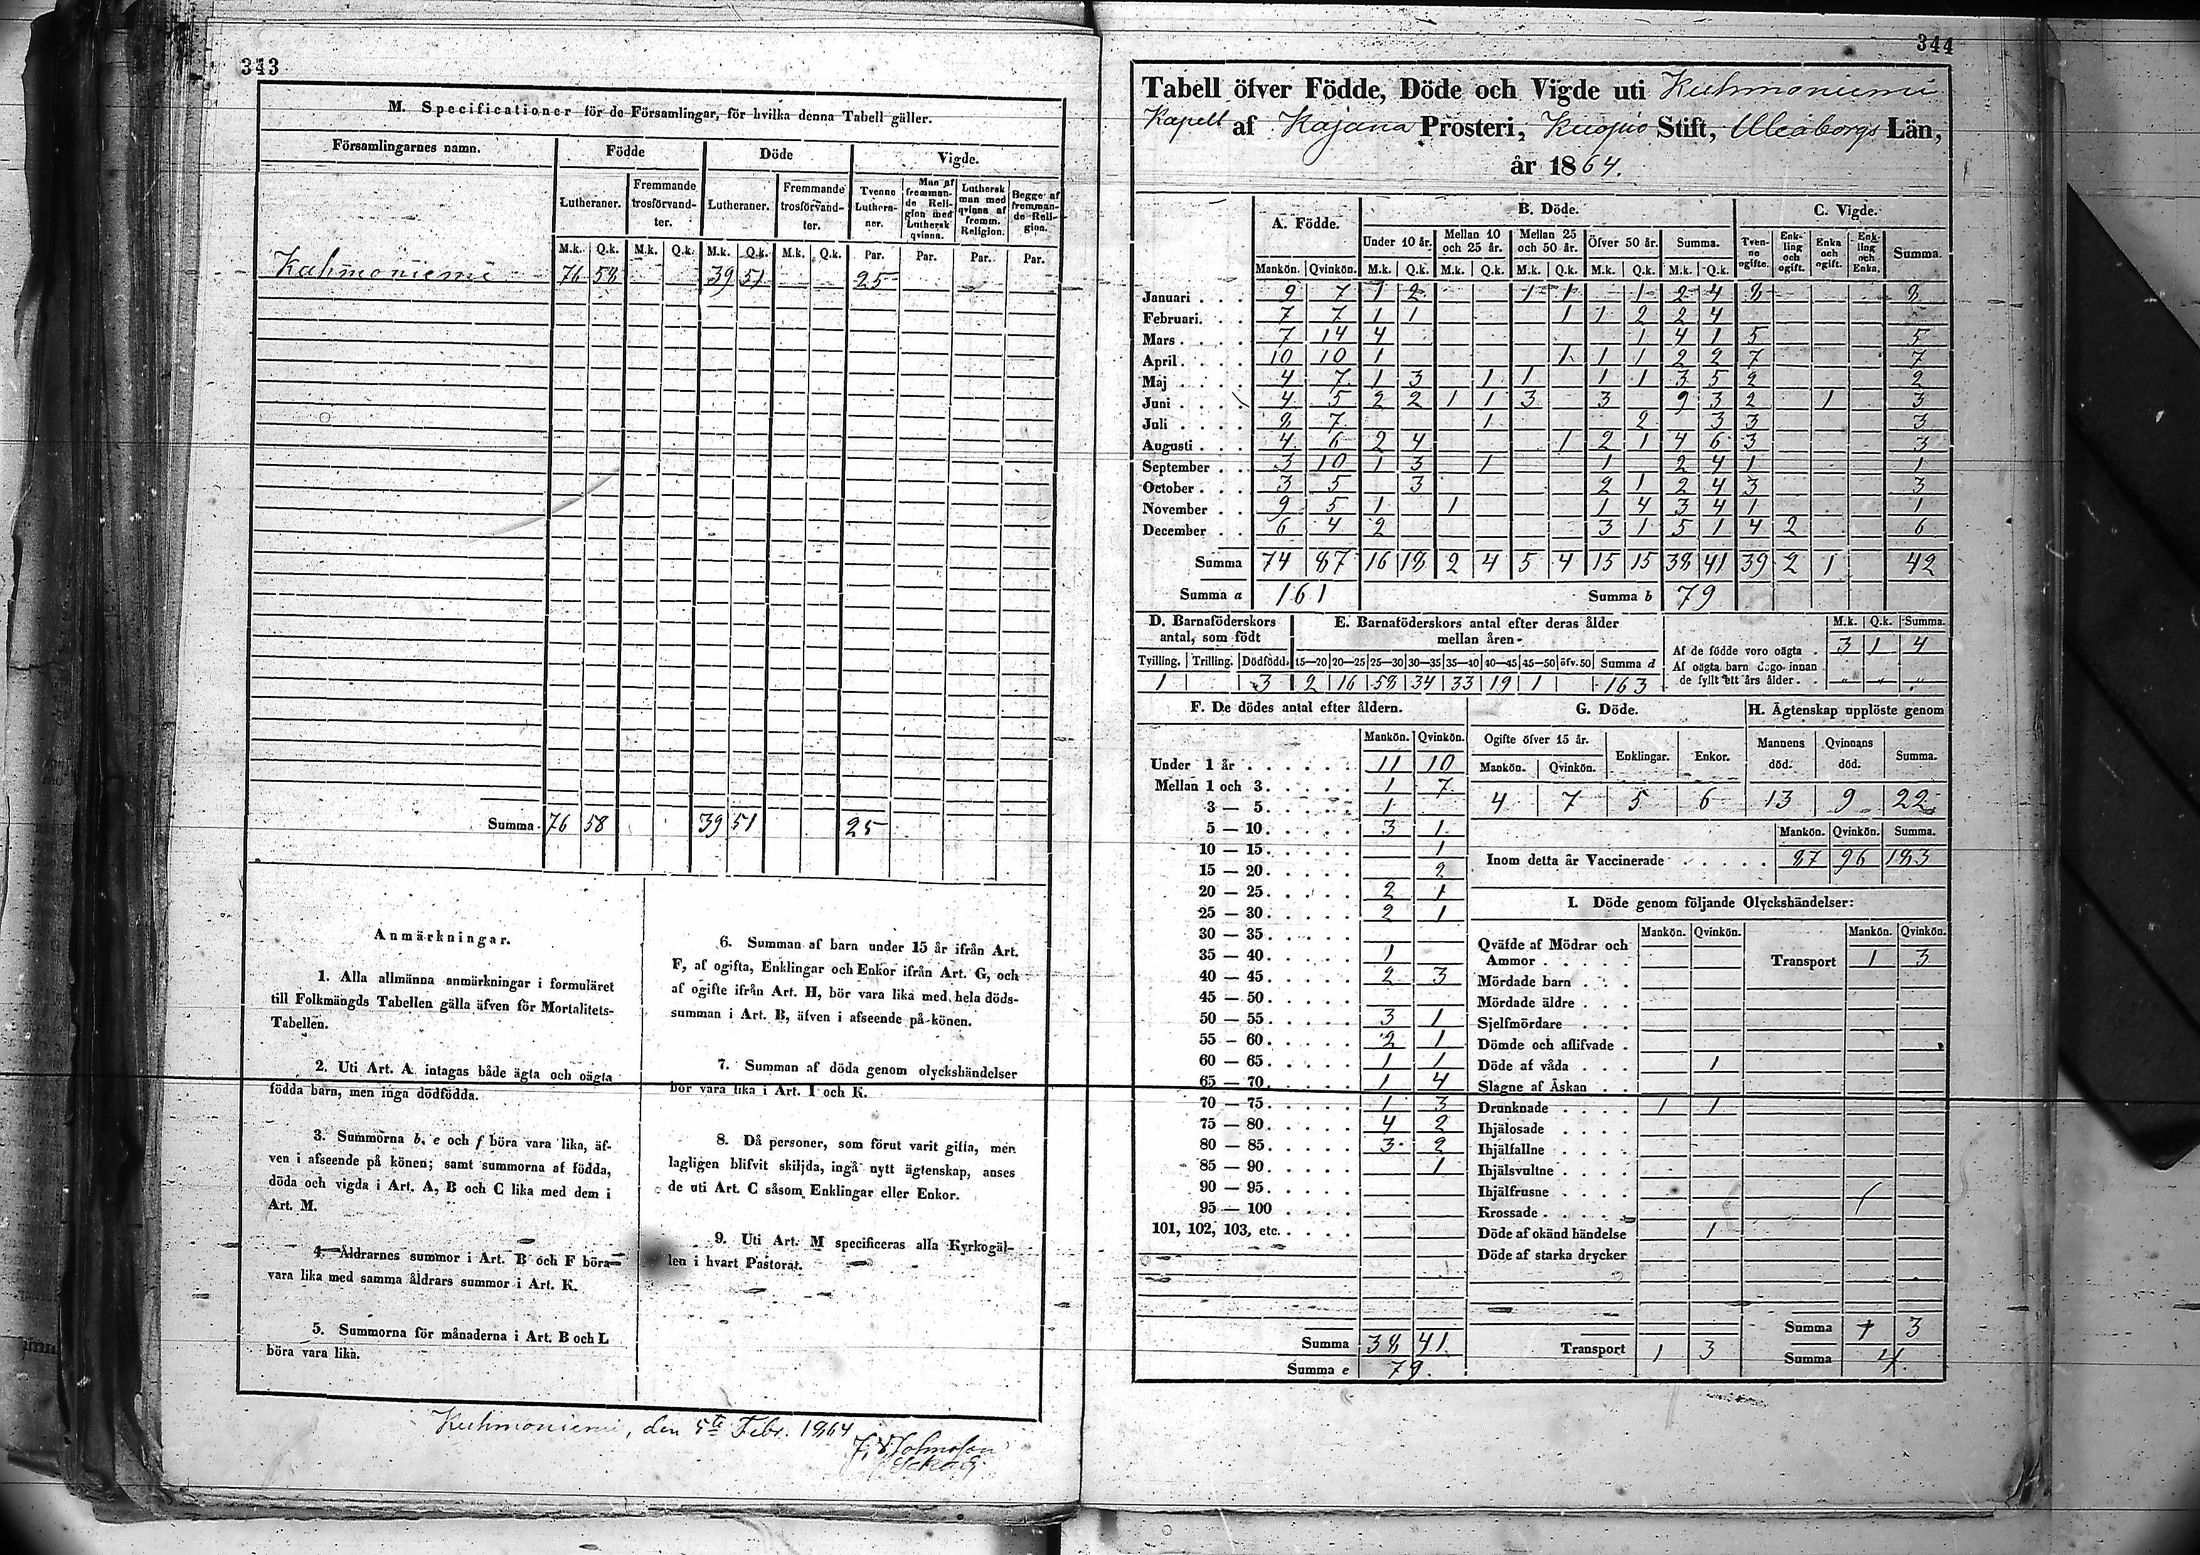 343
M. Specificationer för de Församlingar, för hvilka denna Tabell gäller.
Församlingarnes namn. | Födde | Döde | Vigde.
Lutheraner. | Fremmande trosförvandter. | Lutheraner. | Fremmande trosförvandter. | Tvenne Lutheraner. | Man af fremmande Religion med Luthersk qvinna. | Luthersk man med qvinna af fremm. Religion. | Begge af fremmande Religion.
M.k. | Q.k. | M.k. | Q.k. | M.k. | Q.k. | M.k. | Q.k. | Par. | Par. | Par. | Par.
Kuhmoniemi 76 58 39 51 25
Summa 76 58 39 51 25
Anmärkningar.
1. Alla allmänna anmärkningar i formuläret
till Folkmängds Tabellen gälla äfven för Mortalitets-
Tabellen.
2. Uti Art. A intagas både ägta och oägta
födda barn, men inga dödfödda.
3. Summorna b, e och f böra vara lika, äf-
ven i afseende på könen; samt summorna af födda,
döda och vigda i Art. A, B och C lika med dem i
Art. M.
4. Åldrarnes summor i Art. B och F böra
vara lika med samma åldrars summor i Art. K.
5. Summorna för månaderna i Art. B och L
böra vara lika.
6. Summan af barn under 15 år ifrån Art.
F, af ogifta, Enklingar och Enkor ifrån Art. G, och
af ogifte ifrån Art. H, bör vara lika med hela döds-
summan i Art. B, äfven i afseende på könen.
7. Summan af döda genom olyckshändelser
bör vara lika i Art. I och K.
8. Då personer, som förut varit gifta, men
lagligen blifvit skiljda, ingå nytt ägtenskap, anses
de uti Art. C såsom Enklingar eller Enkor.
9. Uti Art. M specificeras alla Kyrkogäl-
len i hvart Pastorat.
Kuhmoniemi, den 5te Febr. 1864
344
Tabell öfver Födde, Döde och Vigde uti Kuhmoniemi
Kapell af Kajana Prosteri, Kuopio Stift, Uleåborgs Län,
år 1864.
A. Födde. | B. Döde. | C. Vigde.
Under 10 år. | Mellan 10 och 25 år. | Mellan 25 och 50 år. | Öfver 50 år. | Summa. | Tvenne ogifte. | Enkling och ogift. | Enka och ogift. | Enkling och Enka. | Summa.
Mankön. | Qvinkön. | M.k. | Q.k. | M.k. | Q.k. | M.k. | Q.k. | M.k. | Q.k. | M.k. | Q.k.
Januari 9 7 1 2 1 1 1 2 4 8 8
Februari 7 7 1 1 1 1 2 2 4
Mars 7 14 4 1 4 1 5 5
April 10 10 1 1 1 1 2 2 7 7
Maj 4 7 1 3 1 1 1 1 3 5 2 2
Juni 4 5 2 2 1 1 3 3 9 3 2 1 3
Juli 8 7 1 2 3 3 3
Augusti 4 6 2 4 1 2 1 4 6 3 3
September 3 10 1 3 1 1 2 4 1 1
October 3 5 3 2 1 2 4 3 3
November 9 5 1 1 1 4 3 4 1 1
December 6 4 2 3 1 5 1 4 2 6
Summa 74 87 16 18 2 4 5 4 15 15 38 41 39 2 1 42
Summa a 161 Summa b 79
D. Barnaföderskors antal, som födt
Tvilling. | Trilling. | Dödfödd.
1 3
E. Barnaföderskors antal efter deras ålder mellan åren
15—20 | 20—25 | 25—30 | 30—35 | 35—40 | 40—45 | 45—50 | öfv. 50 | Summa d
2 16 58 34 33 19 1 163
M.k. | Q.k. | Summa.
Af de födde voro oägta 3 1 4
Af oägta barn dogo innan
de fyllt ett års ålder " " "
F. De dödes antal efter åldern.
Mankön. Qvinkön.
Under 1 år 11 10
Mellan 1 och 3 1 7
3 — 5 1
5 — 10 3 1
10 — 15 1
15 — 20 2
20 — 25 2 1
25 — 30 2 1
30 — 35
35 — 40 1
40 — 45 2 3
45 — 50
50 — 55 3 1
55 — 60 2 1
60 — 65 1 1
65 — 70 1 4
70 — 75 1 3
75 — 80 4 2
80 — 85 3 2
85 — 90 1
90 — 95
95 — 100
101, 102, 103, etc.
Summa 38 41
Summa e 79.
G. Döde.
Ogifte öfver 15 år. | Enklingar. | Enkor.
Mankön. | Qvinkön.
4 7 5 6
H. Ägtenskap upplöste genom
Mannens död. | Qvinnans död. | Summa.
13 9 22
Mankön. Qvinkön. Summa.
Inom detta år Vaccinerade 87 96 183
I. Döde genom följande Olyckshändelser:
Mankön. Qvinkön. Mankön. Qvinkön.
Qväfde af Mödrar och
Ammor
Transport 1 3
Mördade barn
Mördade äldre
Sjelfmördare
Dömde och aflifvade
Döde af våda 1
Slagne af Åskan
Drunknade 1 1
Ihjälosade
Ihjälfallne
Ihjälsvultne
Ihjälfrusne
Krossade
Döde af okänd händelse 1
Döde af starka drycker
Transport 1 3
Summa 1 3
Summa 4